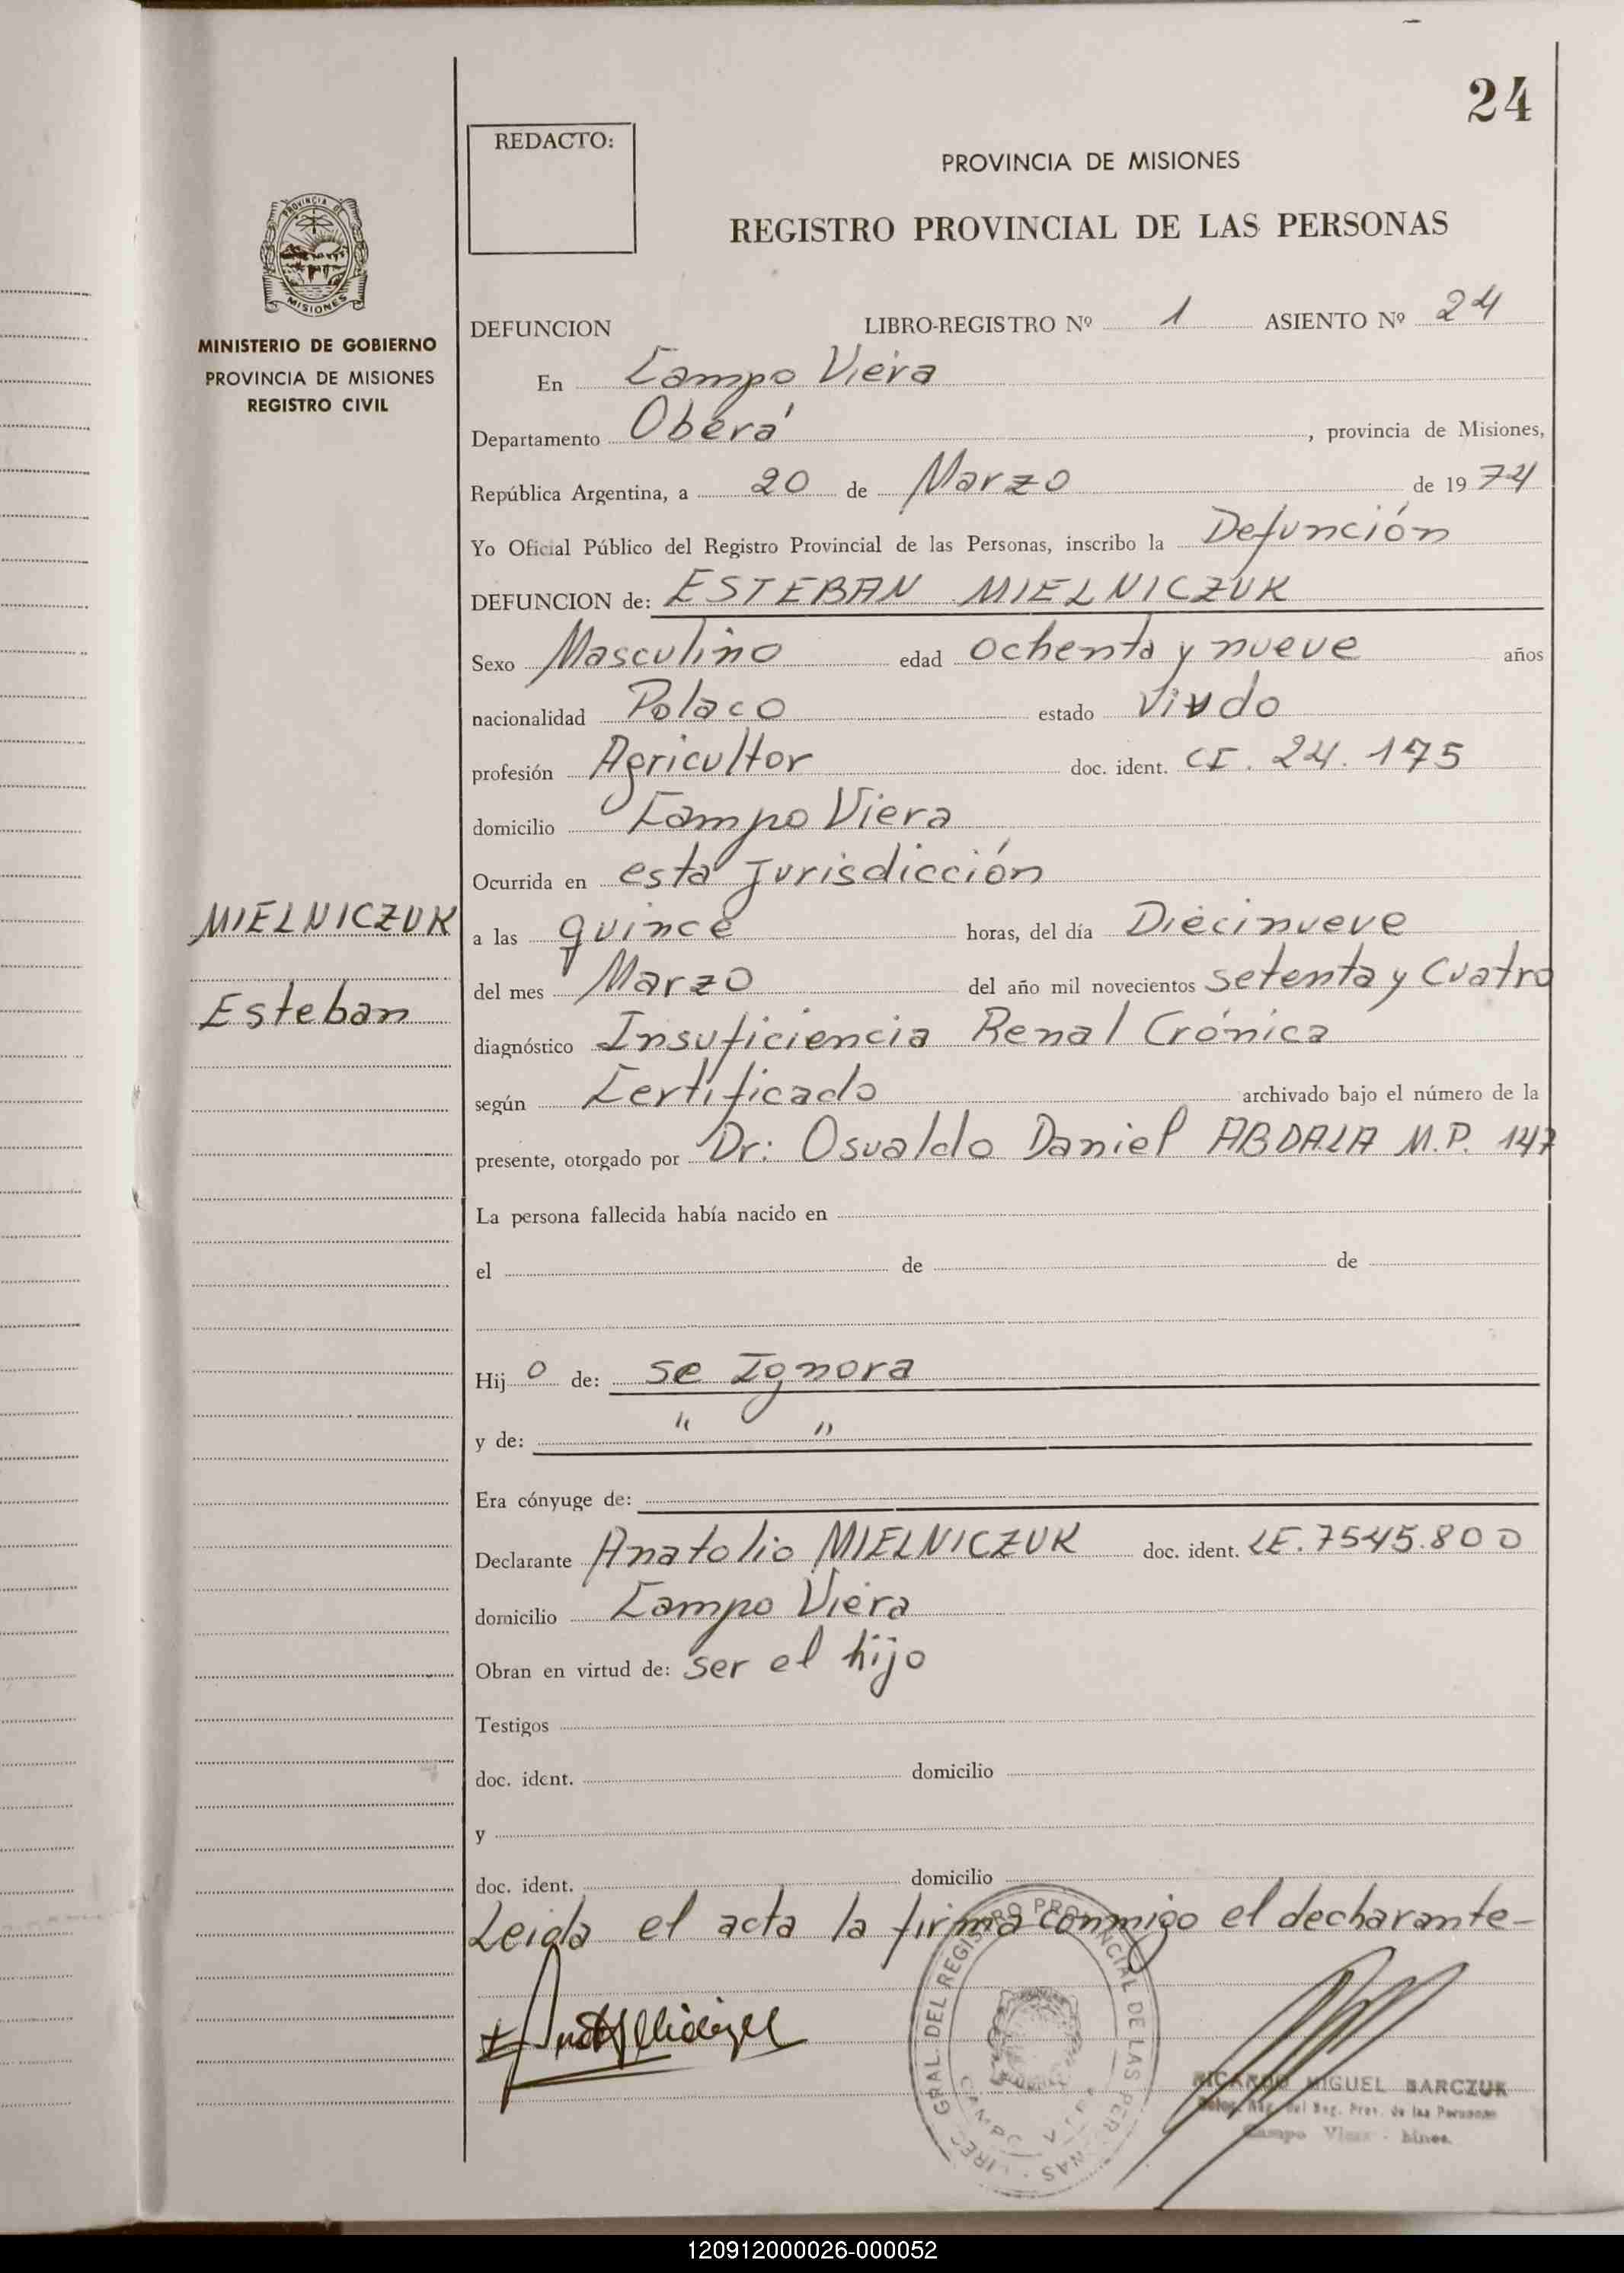 24
REDACTO:
PROVINCIA DE MISIONES
REGISTRO PROVINCIAL DE LAS PERSONAS
PROVINCIA DE
MISIONES
MINISTERIO DE GOBIERNO
PROVINCIA DE MISIONES
REGISTRO CIVIL
DEFUNCION LIBRO-REGISTRO Nº 1 ASIENTO Nº 24
En Campo Viera
Departamento Oberá, provincia de Misiones,
República Argentina, a 20 de Marzo de 1974
Yo Oficial Público del Registro Provincial de las Personas, inscribo la Defunción
DEFUNCION de: ESTEBAN MIELNICZUK
Sexo Masculino edad ochenta y nueve años
nacionalidad Polaco estado Viudo
profesión Agricultor doc. ident. CI. 24.175
domicilio Campo Viera
Ocurrida en esta Jurisdicción
MIELNICZUK
a las quince horas, del día Diecinueve
del mes Marzo del año mil novecientos setenta y Cuatro
Esteban
diagnóstico Insuficiencia Renal Crónica
según Certificado archivado bajo el número de la
presente, otorgado por Dr: Osvaldo Daniel ABDALA M.P. 147
La persona fallecida había nacido en
el de de
Hijo de: se Ignora
y de: " "
Era cónyuge de:
Declarante Anatolio MIELNICZUK doc. ident. LE. 7545.800
domicilio Campo Viera
Obran en virtud de: ser el hijo
Testigos
doc. ident. domicilio
y
doc. ident. domicilio
Leida el acta la firma conmigo el decharante-
GRAL. DEL REGISTRO PROVINCIAL DE LAS PERSONAS
RICARDO MIGUEL BARCZUK
del Reg. Prov. de las Personas
Campo Viera
120912000026-000052